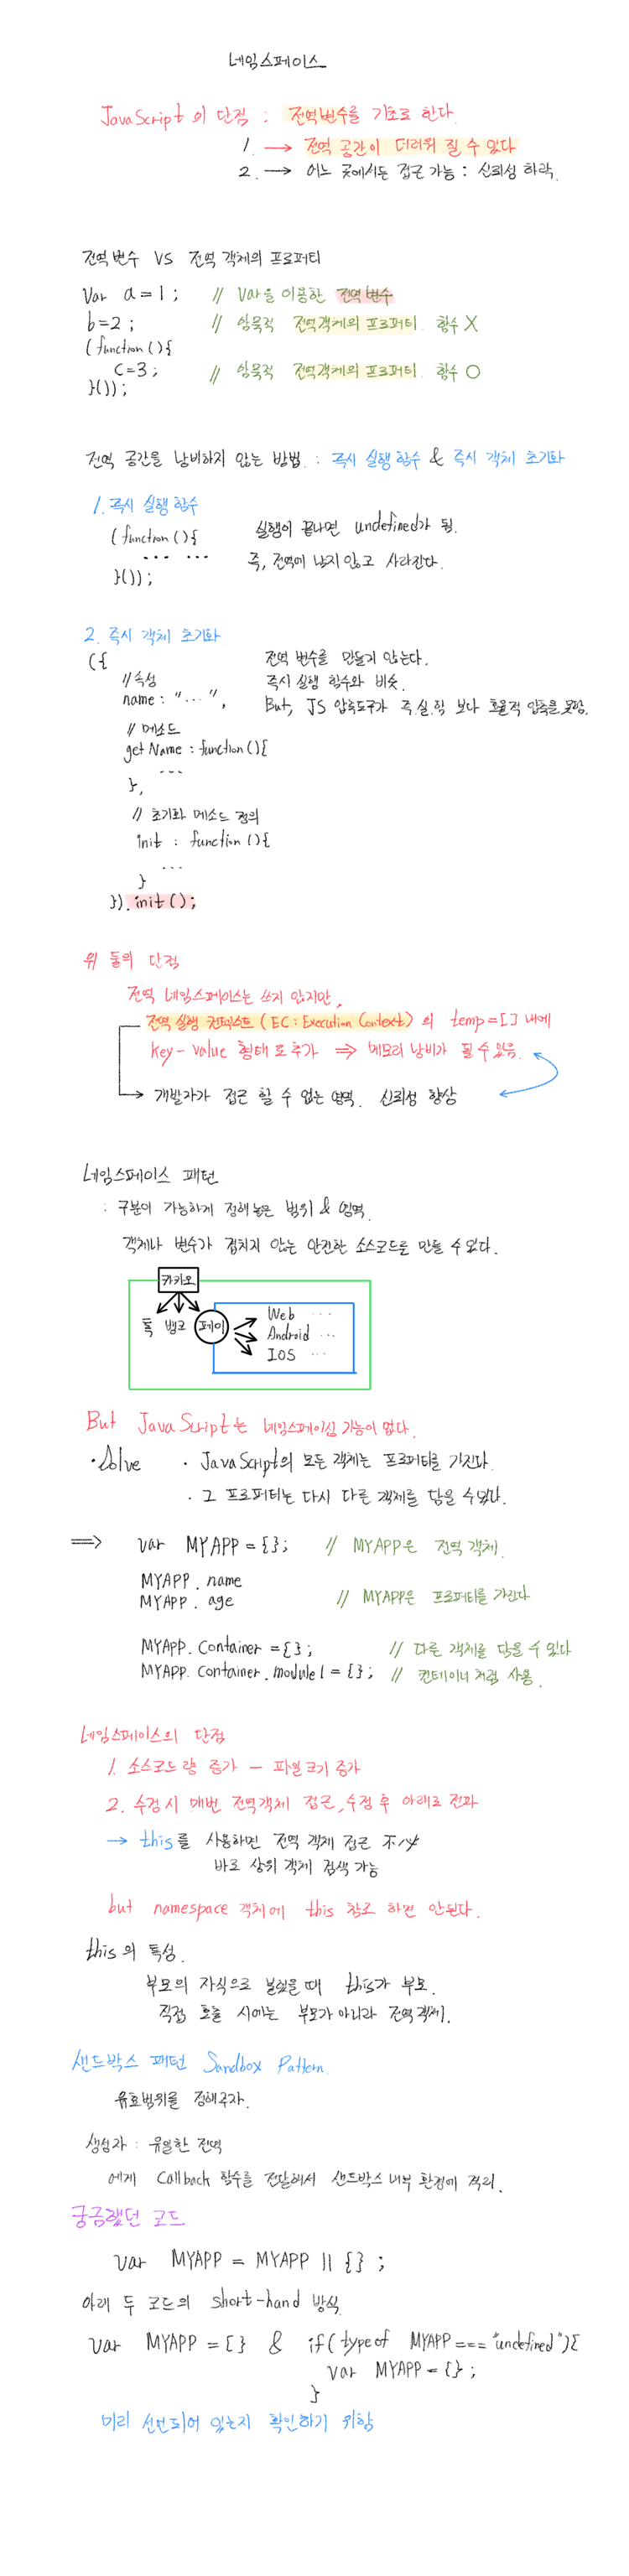 네임스페이스
JavaScript의 단점 : 전역변수를 기초로 한다.
1. → 전역 공간이 더러워 질 수 있다
2. → 어느 곳에서든 접근 가능 : 신뢰성 하락.
전역 변수 VS 전역 객체의 프로퍼티
Var a = 1 ; // Var을 이용한 전역변수
b = 2 ; // 암묵적 전역객체의 프로퍼티 함수 X
(function(){
C = 3 ; // 암묵적 전역객체의 프로퍼티 함수 O
}());
전역 공간을 낭비하지 않는 방법. : 즉시 실행 함수 & 즉시 객체 초기화
1. 즉시 실행 함수
(function(){ 실행이 끝나면 undefined가 됨.
... ... 즉, 전역에 남지 않고 사라진다.
}());
2. 즉시 객체 초기화
({ 전역 변수를 만들지 않는다.
// 속성 즉시 실행 함수와 비슷.
name : "...", But, JS 압축도구가 즉.실.함 보다 효율적 압축을 못함.
// 메소드
getName : function(){
...
},
// 초기화 메소드 정의
init : function(){
...
}
}).init();
위 둘의 단점
전역 네임스페이스는 쓰지 않지만,
전역 실행 컨텍스트 (EC : Execution Context) 의 temp = [] 내에
key - value 형태로 추가 ⇒ 메모리 낭비가 될 수 있음.
개발자가 접근 할 수 없는 영역. 신뢰성 향상
네임스페이스 패턴
: 구분이 가능하게 정해놓은 범위 & 영역.
객체나 변수가 겹치지 않는 안전한 소스코드를 만들 수 있다.
카카오
톡 뱅크 페이
Web ...
Android ...
IOS ...
But JavaScript는 네임스페이싱 기능이 없다.
· Solve · JavaScript의 모든 객체는 프로퍼티를 가진다.
· 그 프로퍼티는 다시 다른 객체를 담을 수 있다.
⇒ var MYAPP = {}; // MYAPP은 전역 객체.
MYAPP. name
MYAPP. age // MYAPP은 프로퍼티를 가진다
MYAPP. Container = {}; // 다른 객체를 담을 수 있다
MYAPP. Container. module1 = {}; // 컨테이너 처럼 사용.
네임스페이스의 단점
1. 소스코드 량 증가 - 파일크기 증가
2. 수정 시 매번 전역객체 접근, 수정 후 아래로 전파
→ this를 사용하면 전역 객체 접근 不必
바로 상위 객체 검색 가능
but namespace 객체에 this 참조 하면 안된다.
this의 특성.
부모의 자식으로 불렸을 때 this가 부모.
직접 호출 시에는 부모가 아니라 전역객체.
샌드박스 패턴 Sandbox Pattern.
유효범위를 정해주자.
생성자 : 유일한 전역
에게 Callback 함수를 전달해서 샌드박스 내부 환경에 격리.
궁금했던 코드
var MYAPP = MYAPP || {} ;
아래 두 코드의 short-hand 방식.
var MYAPP = {} & if(typeof MYAPP === "undefined"){
var MYAPP = {} ;
}
미리 선언되어 있는지 확인하기 위함